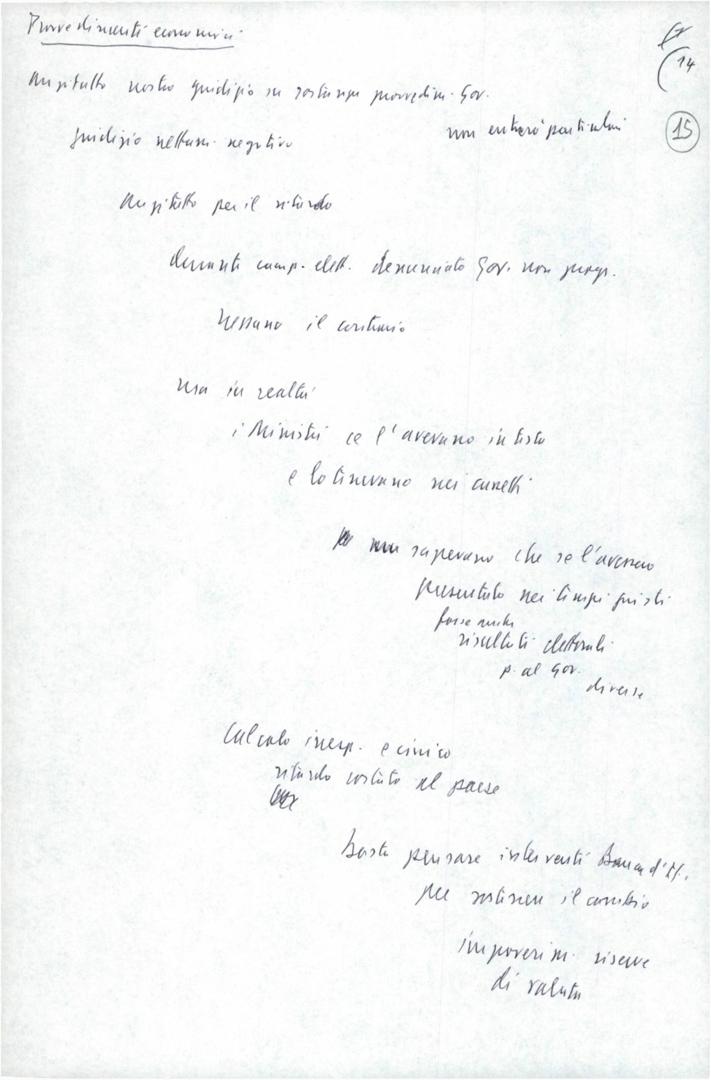 Provvedimenti economici
14
15
anzitutto nostro giudizio su sostanza provvedim. Gov.
non entrerò particolari
giudizio nettam. negativo
anzitutto per il ritardo
durante camp. elett. denunciato Gov. non
nessuno il contrario
ma in realtà
i Ministri ce l'avevano in testa
e lo tenevano nei cassetti
non sapevano che se l'avessero
presentato nei tempi giusti
forse anche
risultati elettorali
p. al Gov.
diversi
Calcolo irresp. e cinico
ritardo costato al paese
basta pensare interventi Banca d'It.
per sostenere il cambio
impoverim. riserve
di valuta